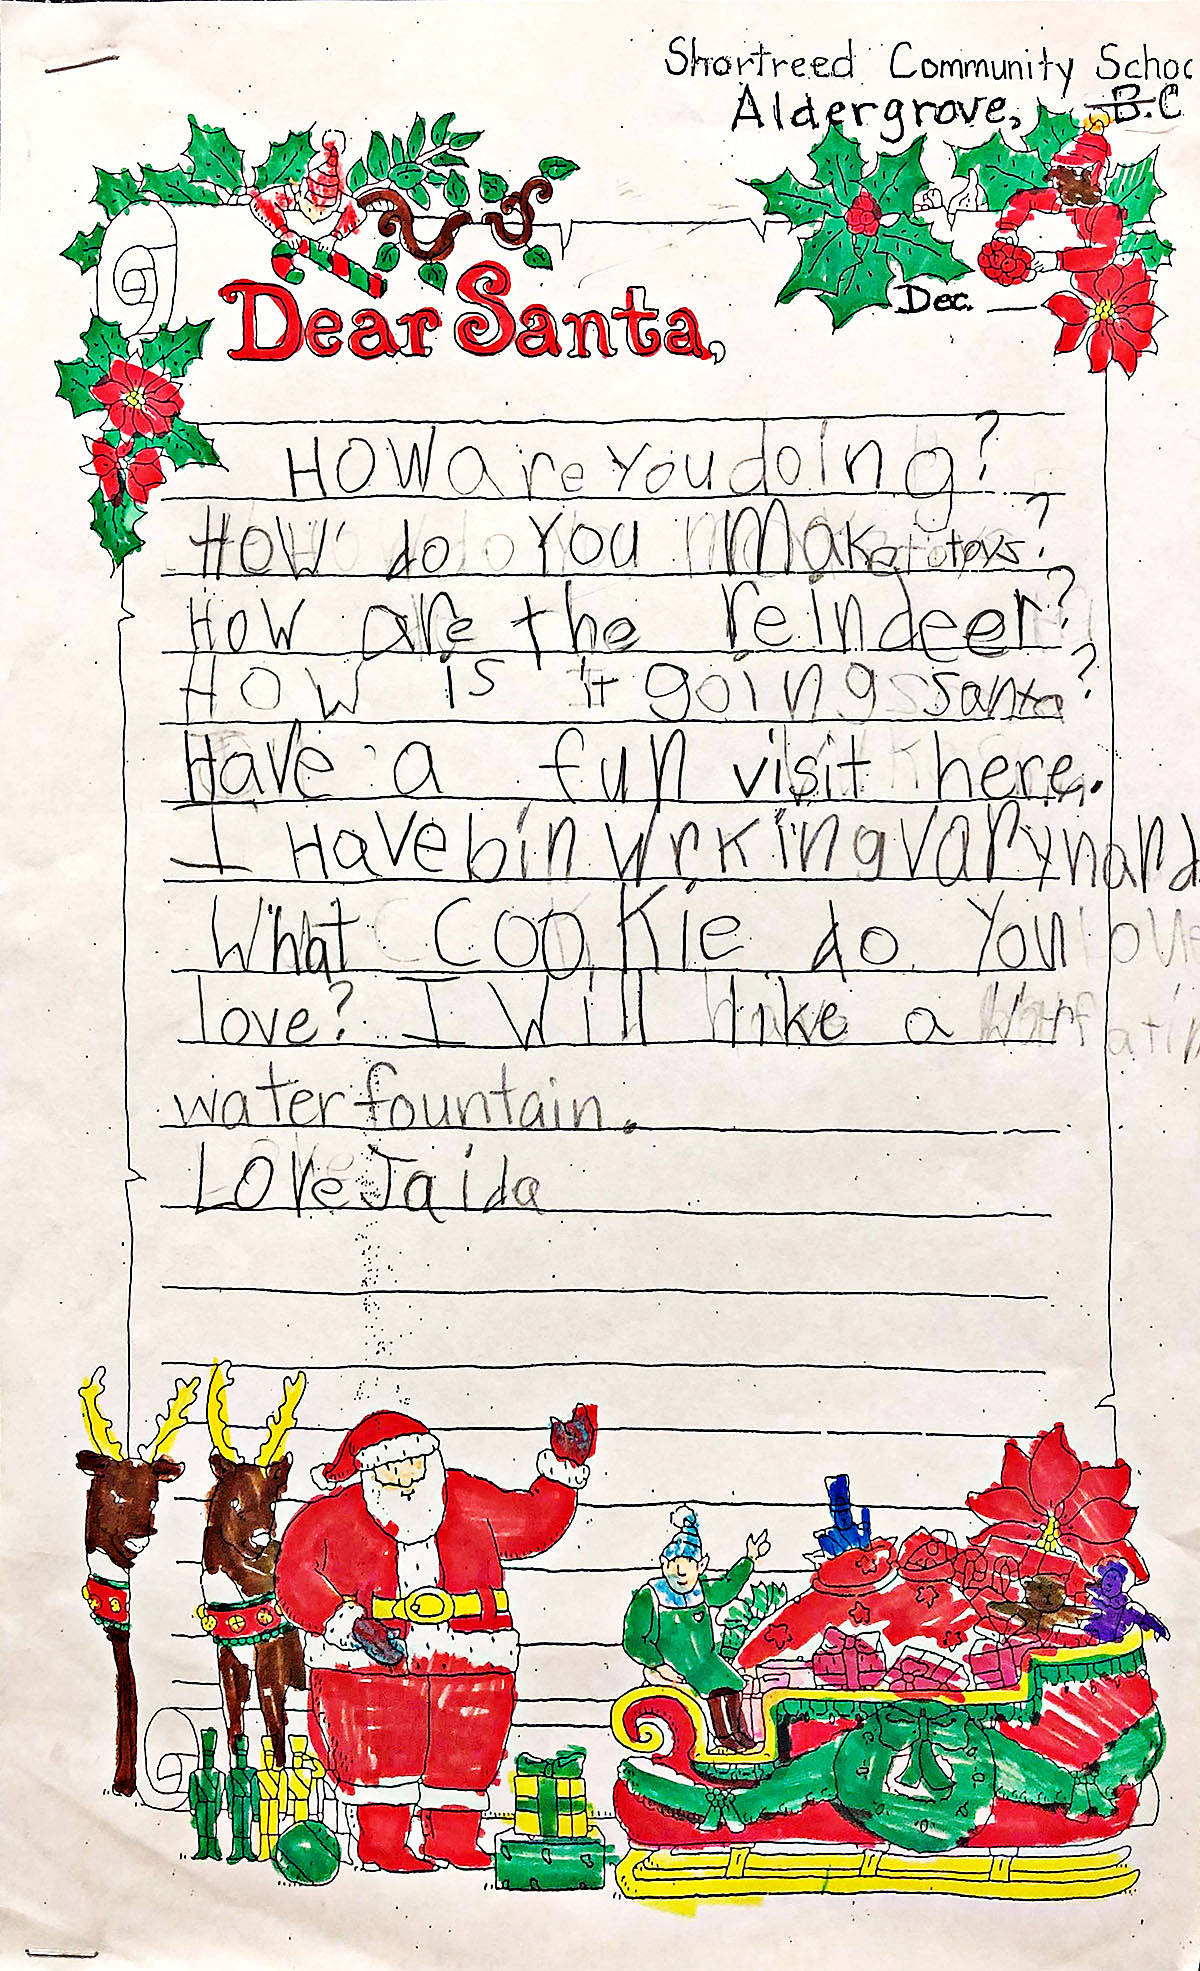 Shortreed Community Schoo
Aldergrove, B.C
Dec.
Dear Santa,
HOW are You doing?
HOW do You Make toys?
HOW are the reindeer?
HOW is it going santa?
Have a fun visit here.
I Have bin Wrking vary hard
What COOKie do You
love? I Will like a
water fountain.
LOVe Jaida